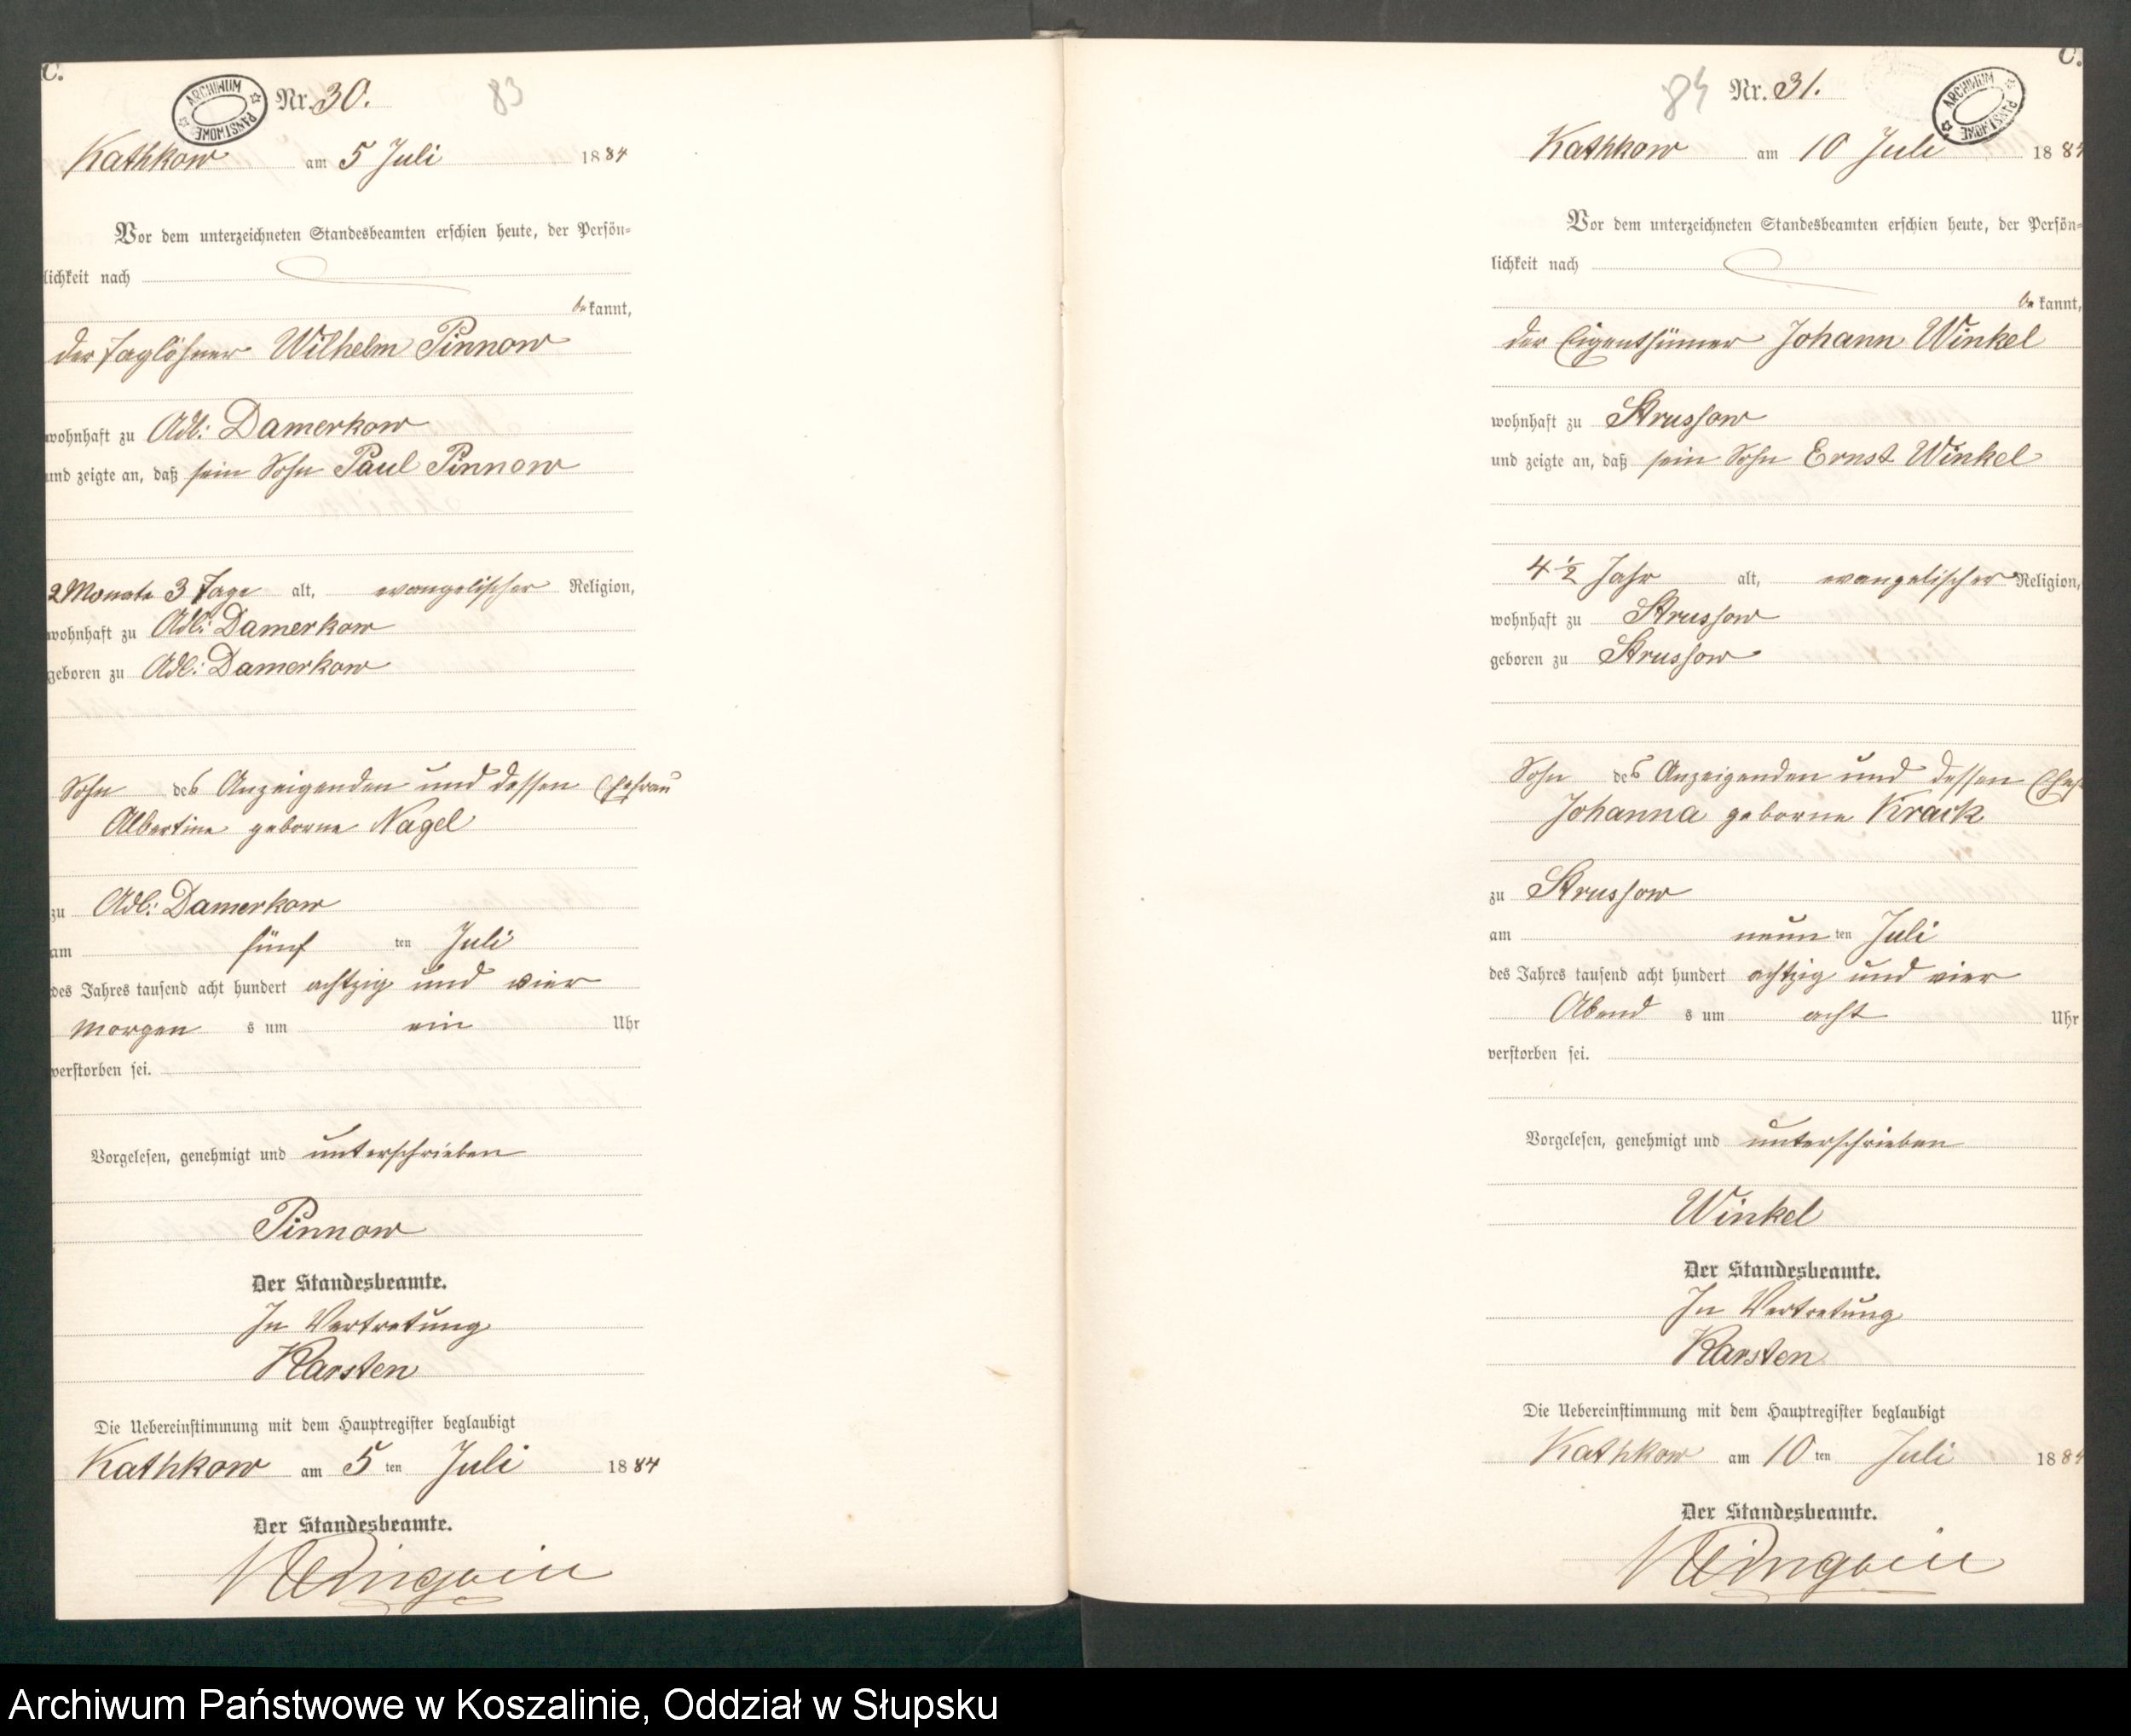 C.
ARCHIWUM PAŃSTWOWE
Nr. 30.
83
Kathkow am 5 Juli 1884
Vor dem unterzeichneten Standesbeamten erschien heute, der Persön-
lichkeit nach
bekannt,
der Taglöhner Wilhelm Pinnow
wohnhaft zu Adl: Damerkow
und zeigte an, daß sein Sohn Paul Pinnow
2 Monate 3 Tage alt, evangelischer Religion,
wohnhaft zu Adl: Damerkow
geboren zu Adl: Damerkow
Sohn des Anzeigenden und dessen Ehefrau
Albertine geborne Nagel
zu Adl: Damerkow
am fünf ten Juli
des Jahres tausend acht hundert achtzig und vier
Morgen s um ein Uhr
verstorben sei.
Vorgelesen, genehmigt und unterschrieben
Pinnow
Der Standesbeamte.
In Vertretung
Karsten
Die Uebereinstimmung mit dem Hauptregister beglaubigt
Kathkow am 5 ten Juli 1884
Der Standesbeamte.
C.
84
Nr. 31.
ARCHIWUM PAŃSTWOWE
Kathkow am 10 Juli 1884
Vor dem unterzeichneten Standesbeamten erschien heute, der Persön-
lichkeit nach
bekannt,
der Eigenthümer Johann Winkel
wohnhaft zu Strussow
und zeigte an, daß sein Sohn Ernst Winkel
4 1/2 Jahr alt, evangelischer Religion,
wohnhaft zu Strussow
geboren zu Strussow
Sohn des Anzeigenden und dessen Ehef
Johanna geborne Krack
zu Strussow
am neun ten Juli
des Jahres tausend acht hundert achtzig und vier
Abend s um acht Uhr
verstorben sei.
Vorgelesen, genehmigt und unterschrieben
Winkel
Der Standesbeamte.
In Vertretung
Karsten
Die Uebereinstimmung mit dem Hauptregister beglaubigt
Kathkow am 10 ten Juli 1884
Der Standesbeamte.
Archiwum Państwowe w Koszalinie, Oddział w Słupsku